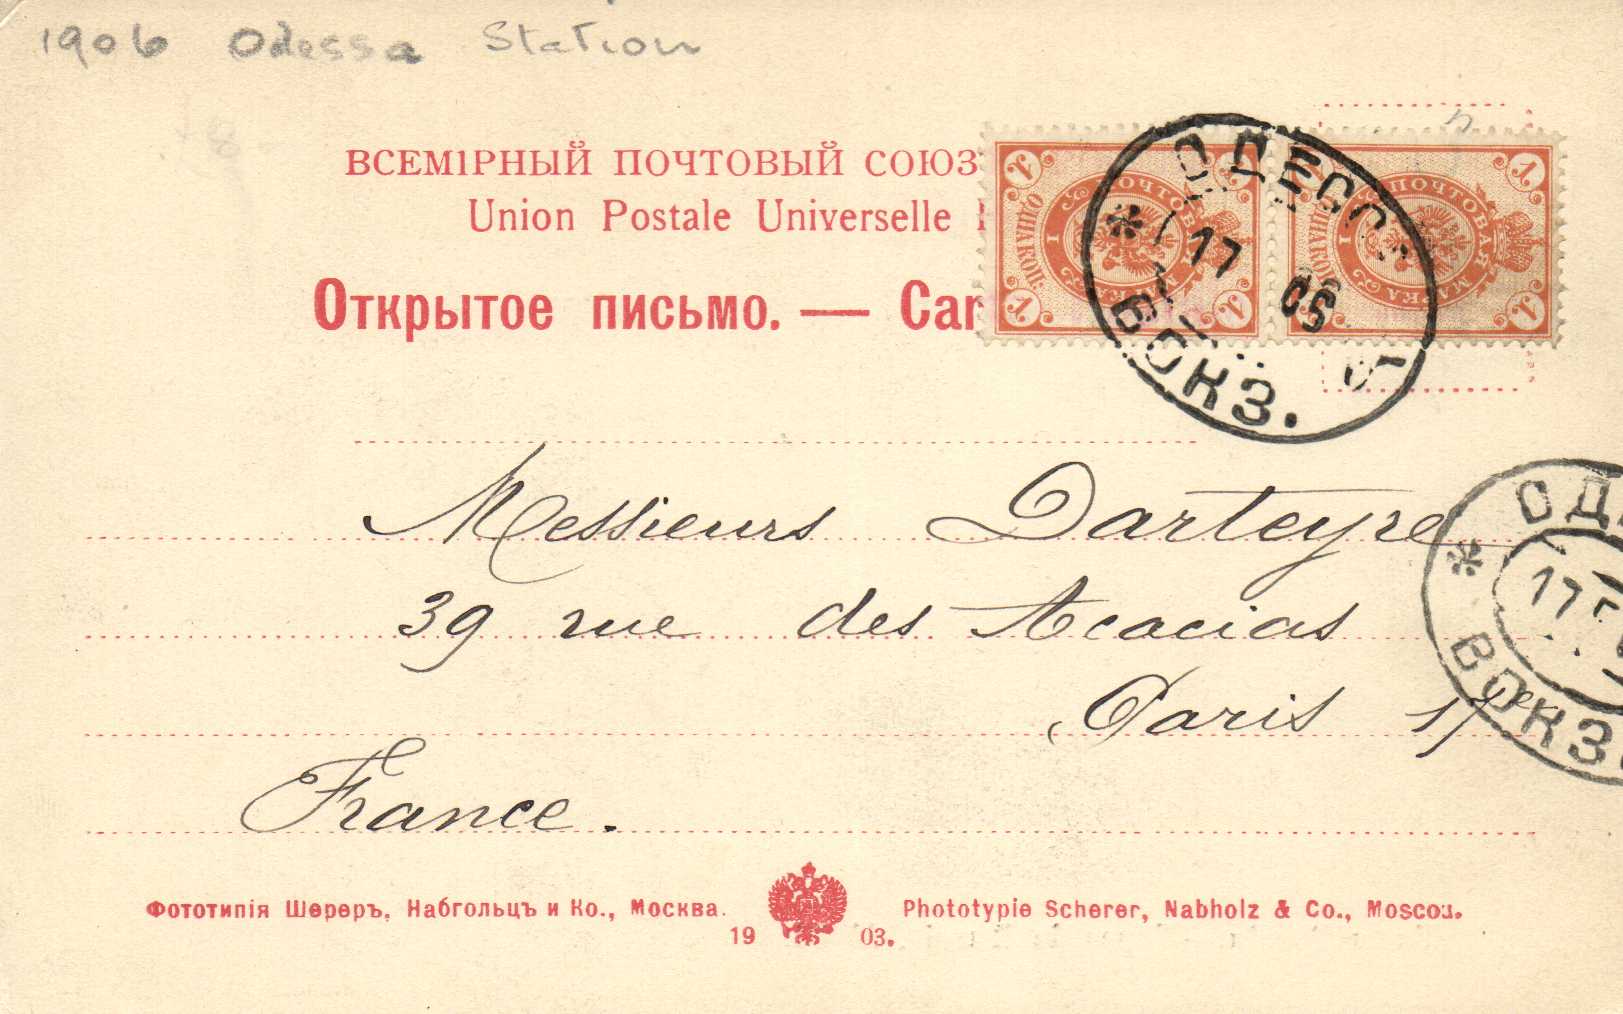 1906 Odessa Station
ВСЕМІРНЫЙ ПОЧТОВЫЙ СОЮЗ
Union Postale Universelle
Открытое письмо. — Car
ПОЧТОВАЯ МАРКА
1
ПОЧТОВАЯ МАРКА
1
ОДЕССА
17
06
ВОКЗ.
Messieurs Darteyre
39 rue des Acacias
Paris 17
France.
ОД
17
ВОКЗ.
Фототипія Шереръ, Набгольцъ и Ко., Москва.
Phototypie Scherer, Nabholz & Co., Moscou.
19 03.